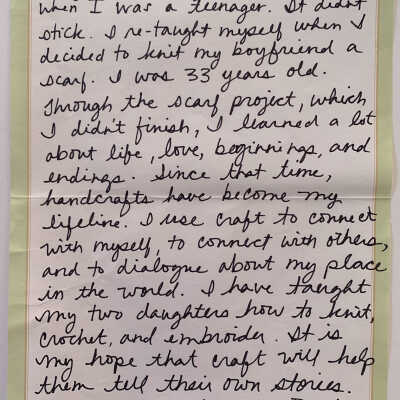 when I was a teenager. It didn't
stick. I re-taught myself when I
decided to knit my boyfriend a
scarf. I was 33 years old.
Through the scarf project, which
I didn't finish, I learned a lot
about life, love, beginnings, and
endings. Since that time,
handcrafts have become my
lifeline. I use craft to connect
with myself, to connect with others,
and to dialogue about my place
in the world. I have taught
my two daughters how to knit,
crochet, and embroider. It is
my hope that craft will help
them tell their own stories.